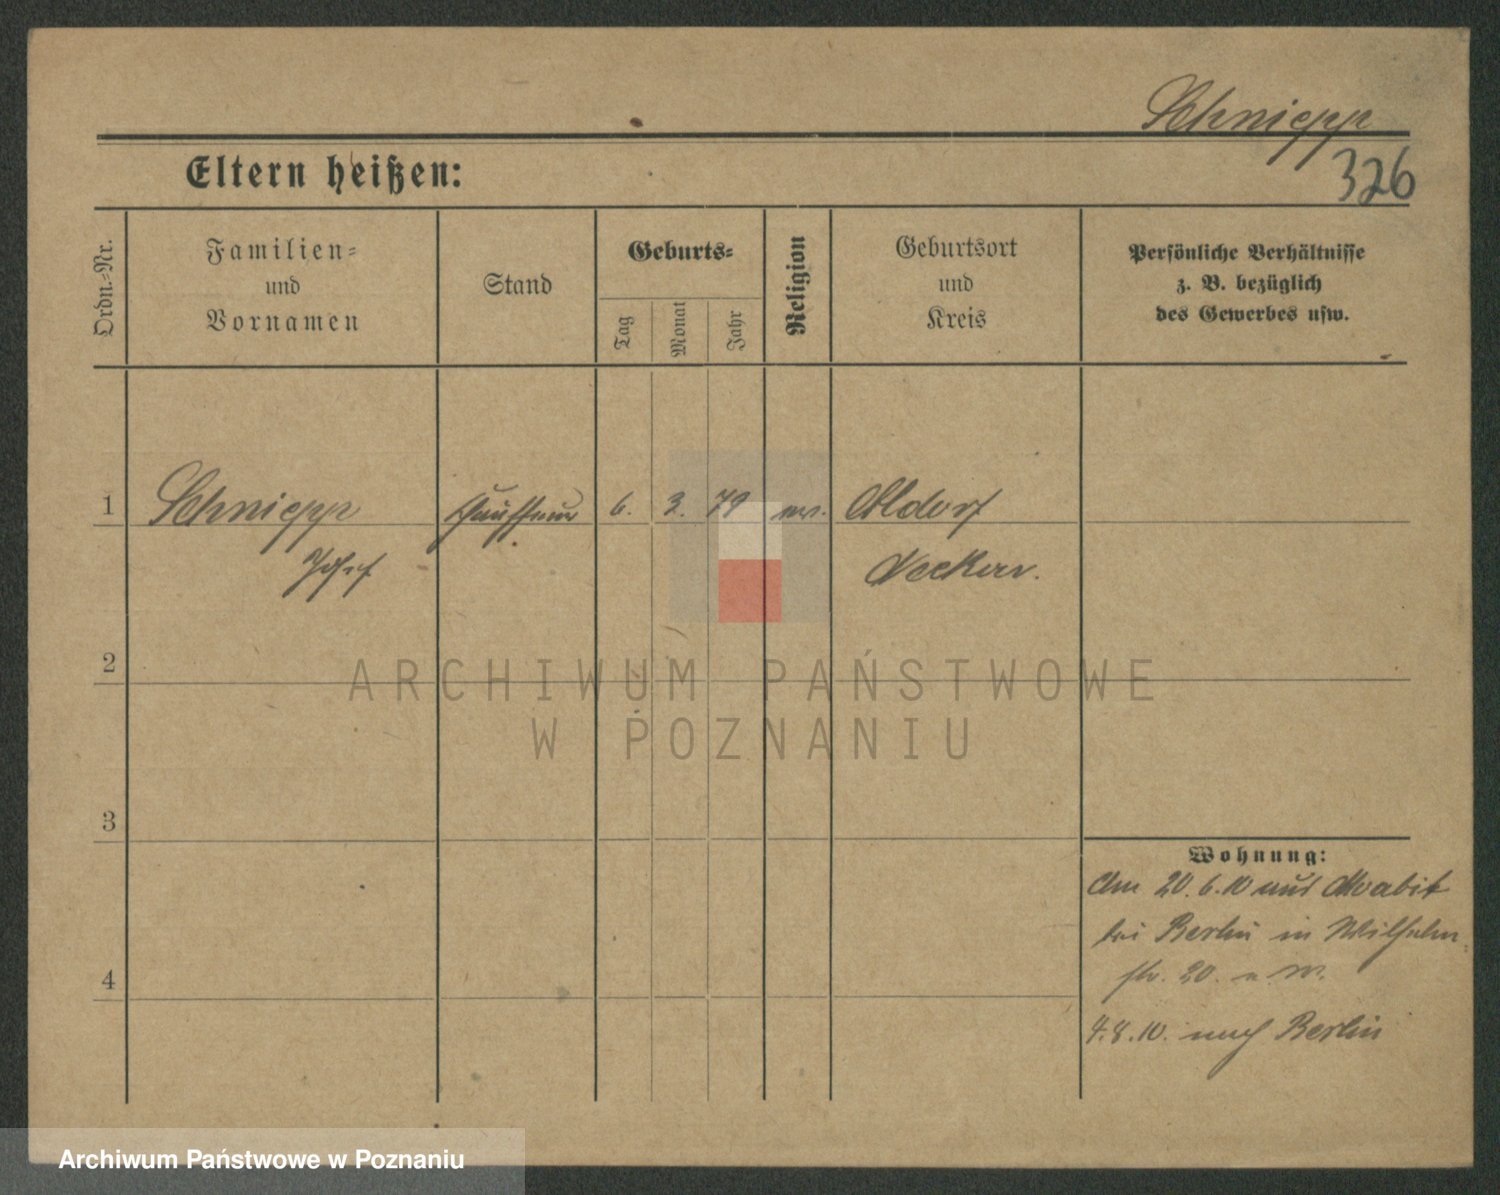 Schniepp
326
Eltern heißen:
Ordn.-Nr.
Familien-
und
Vornamen
Stand
Geburts-
Tag
Monat
Jahr
Religion
Geburtsort
und
Kreis
Persönliche Verhältnisse
z. B. bezüglich
des Gewerbes usw.
1
Schniepp
Josef
6. 3. 79
Aldorf
Neckar.
2
ARCHIWUM PAŃSTWOWE
W POZNANIU
3
4
Wohnung:
Am 20.6.10 aus Moabit
bei Berlin in Wilhelm
str. 20. a. W.
4.8.10. nach Berlin
Archiwum Państwowe w Poznaniu